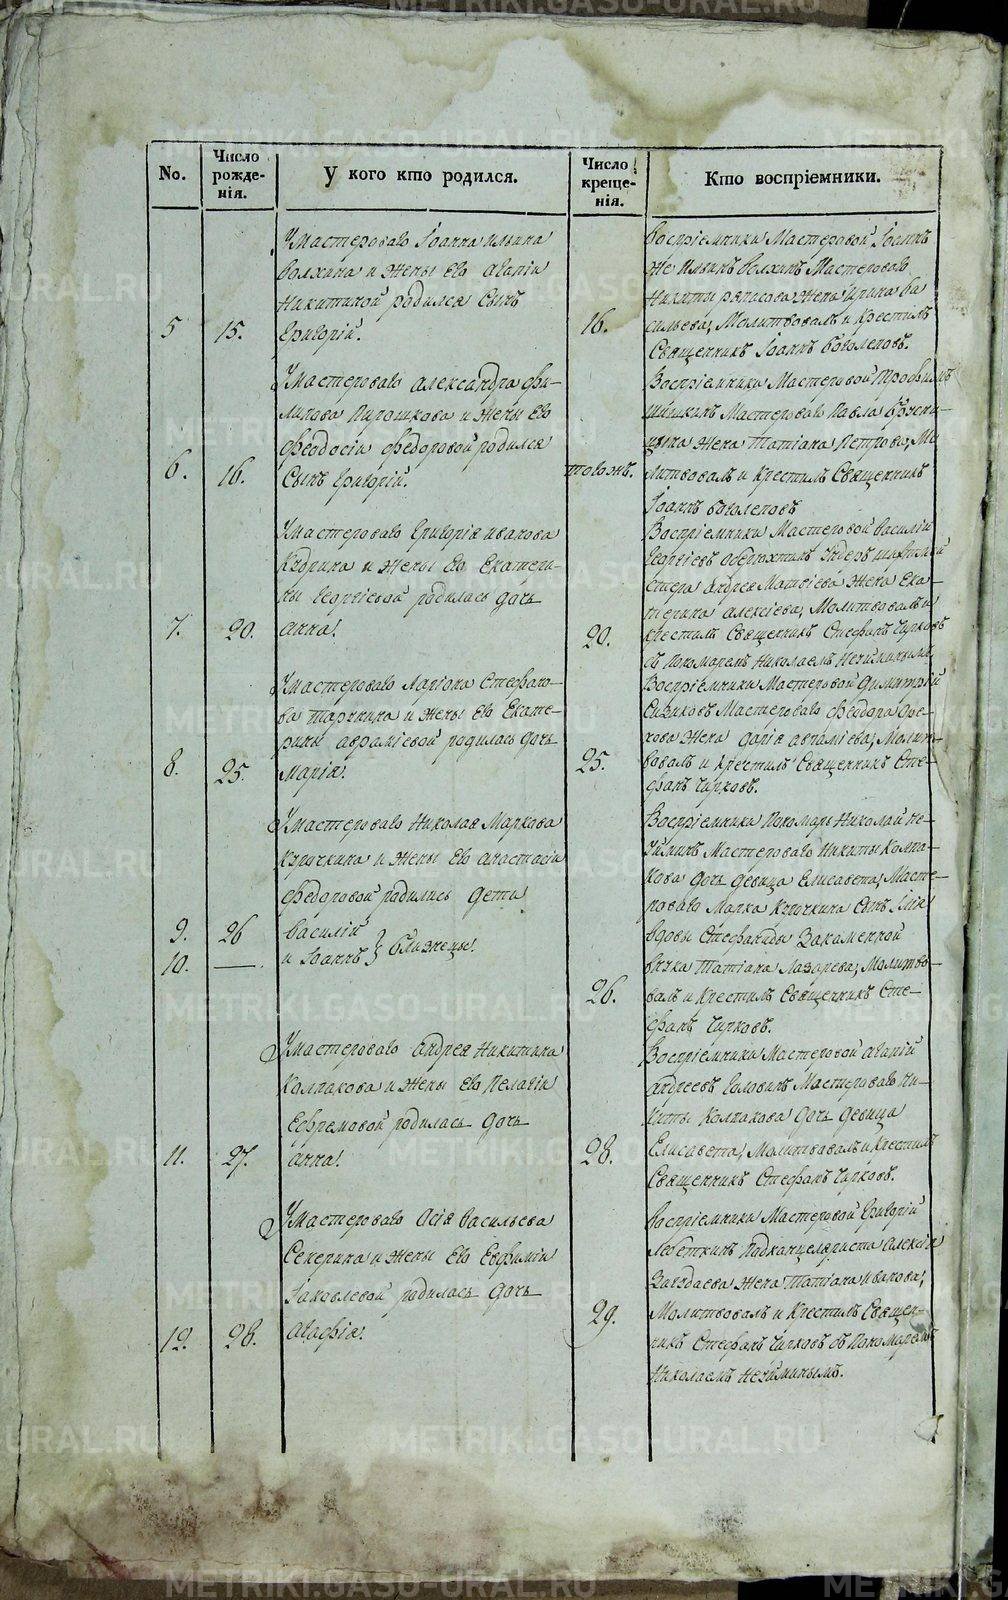 No.
Число рожде-
нія.
У кого кто родился.
Число креще-
нія.
Кто воспріемники.
У мастероваго Іоанна Ильина
Волхина и жены его Агапіи
Никитиной родился сынъ
5 15. Григорій.
16.
Воспріемники Мастеровой Іоаннъ
же Ильинъ Волхинъ Мастероваго
Никиты жена Ирина Ва-
сильева, Молитвовалъ и крестилъ
Священникъ Іоаннъ Боголеповъ.
У мастероваго Александра Фи-
липова Пирошкова и жены его
Феодосіи Федоровой родился
6. 16. Сынъ Григорій.
тогожъ.
Воспріемники Мастеровой Трофимъ
Шишкинъ Мастероваго Павла
жена Татіана Петрова, Мо-
литвовалъ и крестилъ Священникъ
Іоаннъ Боголеповъ
У мастероваго Григорія Иванова
Кудрина и жены его Екатери-
ны Георгіевой родилась дочь
7. 20. Анна.
20.
Воспріемники Мастеровой Василій
Георгіевъ Обертхтинъ
Андрея Матвіева жена Ека-
терина Алексіева, Молитвовалъ и
крестилъ Священникъ Стефанъ Чирковъ
съ Пономаремъ Николаемъ Неуйминымъ.
У мастероваго Ларіона Стефано-
ва и жены его Екате-
рины Авраміевой родилась дочь
8. 25. Марія.
25.
Воспріемники Мастеровой Димитрій
Сизиковъ Мастероваго Феодора Оре-
хова жена Дарія, Молит-
вовалъ и крестилъ Священникъ Сте-
фанъ Чирковъ.
У мастероваго Николая Маркова
Кручкина и жены его Анастасіи
Федоровой родились дети
9. 26 Василій
10. —. и Іоаннъ } близнецы.
26.
Воспріемники Пономарь Николай Не-
уйминъ Мастероваго Никиты Колпа-
кова дочь девица Елисавета, Масте-
роваго Марка Кручкина сынъ Илія
вдовы Стефаниды Закаменной
внука Татіана Лазарева, Молитво-
валъ и крестилъ Священникъ Сте-
фанъ Чирковъ.
У мастероваго Андрея Никитина
Колпакова и жены его Пелагіи
Ефремовой родилась дочь
11. 27. Анна.
28.
Воспріемники Мастеровой Агапій
Андреевъ Головинъ Мастероваго Ни-
киты Колпакова дочь девица
Елисавета, Молитвовалъ и крестилъ
Священникъ Стефанъ Чирковъ.
У мастероваго Осія Васильева
Секерина и жены его Евфиміи
Іаковлевой родилась дочь
12. 28. Агафія.
29.
Воспріемники Мастеровой Григорій
Лебеткинъ Подканцеляриста Алексія
жена Татіана Иванова,
Молитвовалъ и крестилъ Священ-
никъ Стефанъ Чирковъ съ Пономаремъ
Николаемъ Неуйминымъ.
METRIKI.GASO-URAL.RU